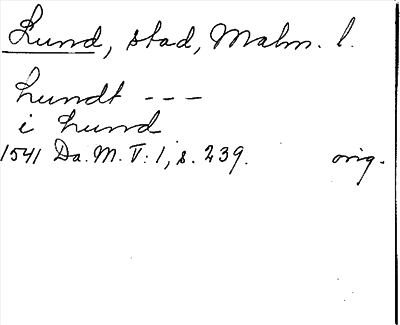 Lund, stad, Malm. l.
Lundt ---
i Lund
1541 Da. M. V: 1, s. 239. orig.